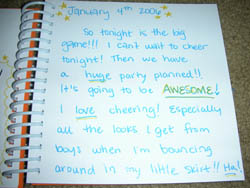 January 4th 2006
So tonight is the big
game!!! I can't wait to cheer
tonight! Then we have
a huge party planned!!
It's going to be AWESOME!
I love cheering! Especially
all the looks I get from
boys when I'm bouncing
around in my little skirt!! Ha!